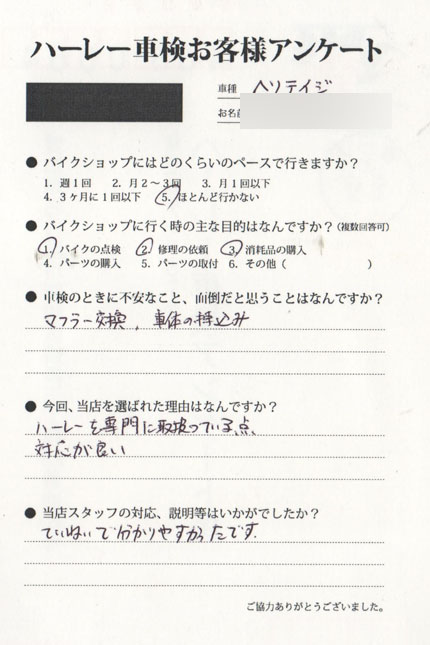 ハーレー車検お客様アンケート
車種 ヘリテイジ
お名前
● バイクショップにはどのくらいのペースで行きますか？
1. 週1回 2. 月2～3回 3. 月1回以下
4. 3ヶ月に1回以下 5. ほとんど行かない
● バイクショップに行く時の主な目的はなんですか？(複数回答可)
1. バイクの点検 2. 修理の依頼 3. 消耗品の購入
4. パーツの購入 5. パーツの取付 6. その他 ( )
● 車検のときに不安なこと、面倒だと思うことはなんですか？
マフラー交換、車体の持込み
● 今回、当店を選ばれた理由はなんですか？
ハーレーを専門に取扱っている点、
対応が良い
● 当店スタッフの対応、説明等はいかがでしたか？
ていねいで分かりやすかったです。
ご協力ありがとうございました。